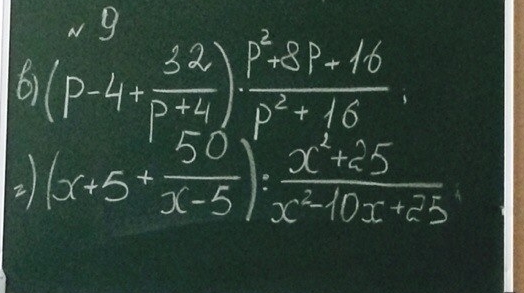 № 9
в) (p-4+\frac{32}{p+4}) \cdot \frac{p^2+8p+16}{p^2+16};
г) (x+5+\frac{50}{x-5}) : \frac{x^2+25}{x^2-10x+25};